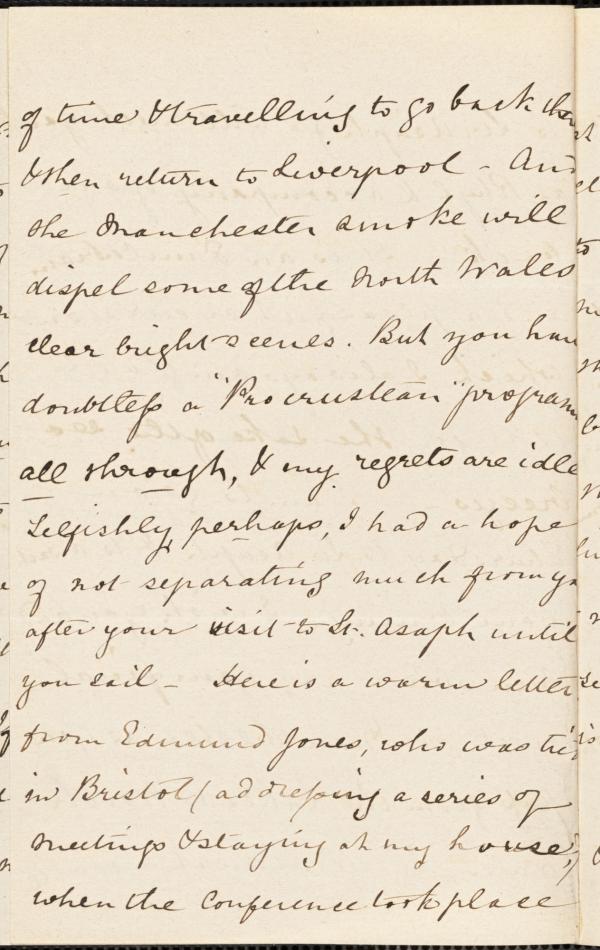 of time & travelling to go back then
& then return to Liverpool - And
the Manchester smoke will
dispel some of the North Wales
clear bright scenes. But you have
doubtless a "Procrustean" program
all through, & my regrets are idle
Selfishly, perhaps, I had a hope
of not separating much from you
after your visit to St. Asaph until
you sail - Here is a warm letter
from Edmund Jones, who was
in Bristol (addressing a series of
meetings & staying at my house,)
when the Conference took place